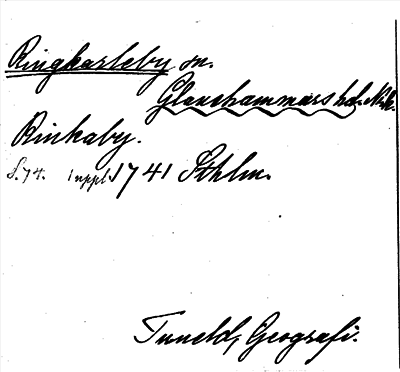 Ringkarleby sn.
Glanshammars hd. Nrk.
Rinkaby.
S. 74. 1 uppl. 1741 Sthlm.
Tuneld, Geografi.